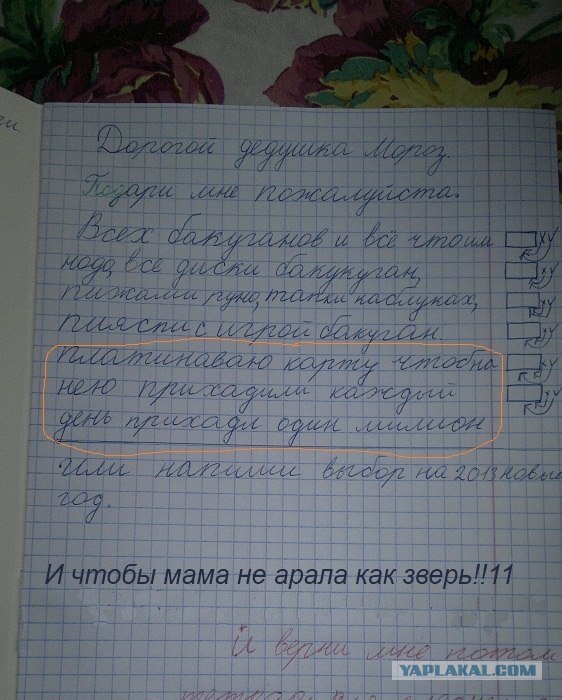 Дорогой дедушка Мороз.
Подари мне пожалуйста.
Всех бакуганов и всё чтоим
нада, все диски бакукуган,
пижами руно, тапки каблуках,
пияспи с игрой бакуган.
платинаваю карту чтоб на
нею прихадили каждый
день прихадл один милион
или напиши выбор на 2013 новые
год.
И чтобы мама не арала как зверь!!11
И верни мне потом
YAPLAKAL.COM